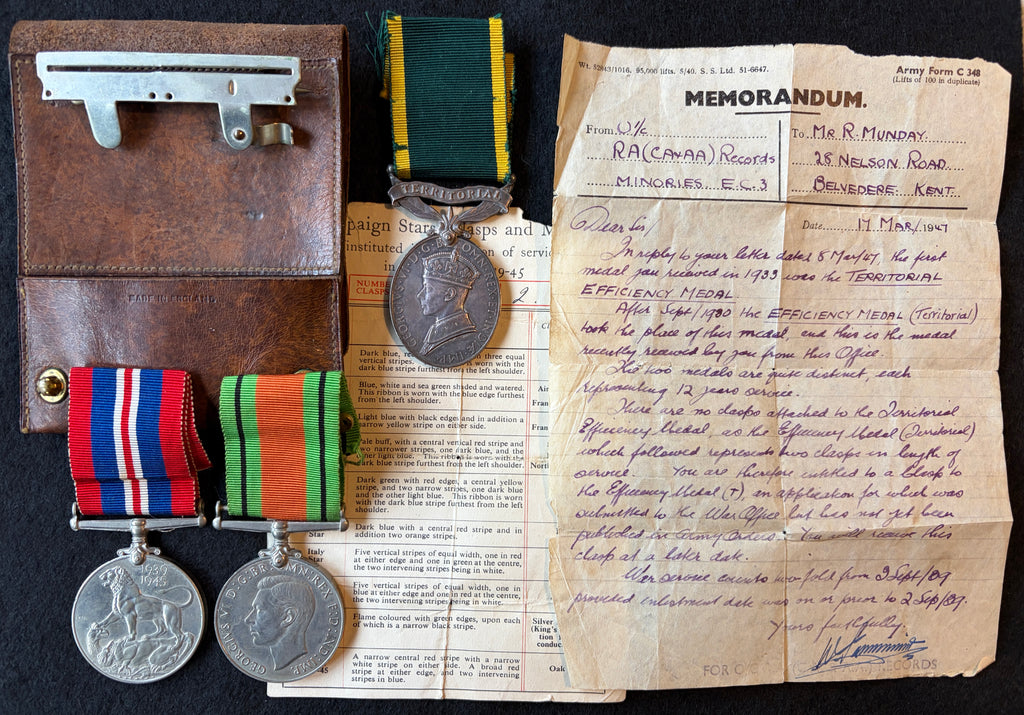 MADE IN ENGLAND
TERRITORIAL
1939
1945
paign Stars, Clasps and M
instituted
n of servic
in
9-45
NUMBER
CLASPS
2.
Dark blue, red
three equal
vertical stripes.
worn with the
dark blue stripe furthest from the left shoulder.
Blue, white and sea green shaded and watered.
This ribbon is worn with the blue edge furthest from
the left shoulder.
Air
Fran
Light blue with black edges and in addition a
narrow yellow stripe on either side.
Fran
Pale buff, with a central vertical red stripe and
two narrower stripes, one dark blue, and the
other light blue. This ribbon is worn with the
dark blue stripe furthest from the left shoulder.
North
Dark green with red edges, a central yellow
stripe, and two narrow stripes, one dark blue
and the other light blue. This ribbon is worn
with the dark blue stripe furthest from the left
shoulder.
Star
Dark blue with a central red stripe and in
addition two orange stripes.
Italy
Star
Five vertical stripes of equal width, one in red
at either edge and one in green at the centre,
the two intervening stripes being in white.
Five vertical stripes of equal width, one in
blue at either edge and one in red at the centre,
the two intervening stripes being in white.
Flame coloured with green edges, upon each
of which is a narrow black stripe.
Silver
(King's
tion
conduc
A narrow central red stripe with a narrow
white stripe on either side. A broad red
stripe at either edge, and two intervening
stripes in blue.
Oak
45
Wt. 52643/1016. 95,000 lifts. 5/40. S. S. Ltd. 51-6647.
Army Form C 348
(Lifts of 100 in duplicate)
MEMORANDUM.
From O i/c
RA (CA & AA) Records
MINORIES E.C.3
To MR. R. MUNDAY.
28 NELSON ROAD
BELVEDERE KENT
Date 17 MAR/1947
Dear Sir/
In reply to your letter dated 8 Mar/47, the first
medal you received in 1933 was the TERRITORIAL
EFFICIENCY MEDAL
After Sept/1930 the EFFICIENCY MEDAL (Territorial)
took the place of this medal, and this is the medal
recently received by you from this Office.
The two medals are quite distinct, each
representing 12 years service.
There are no clasps attached to the Territorial
Efficiency Medal, as the Efficiency Medal (Territorial)
which followed represents two clasps in length of
service. You are therefore entitled to a Clasp to
the Efficiency Medal (T) an application for which was
submitted to the War Office but has not yet been
published in Army Orders. You will receive this
clasp at a later date.
War service counts two fold from 3 Sept/39
provided enlistment date was on or prior to 2 Sep/39.
Yours faithfully.
FOR
RECORDS